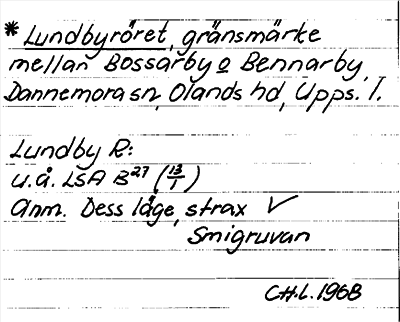 * Lundbyröret, gränsmärke
mellan Bossarby o Bennarby,
Dannemora sn, Olands hd, Upps. l.
Lundby R:
u.å. LSA B27 (13/1)
Anm. Dess läge, strax V
Smigruvan
C.H.L. 1968